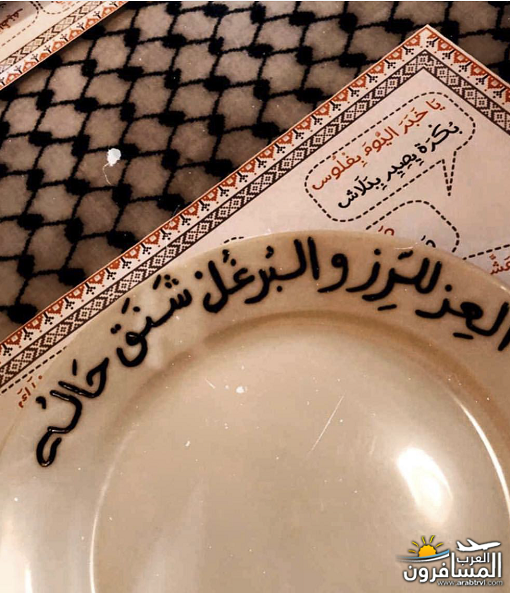 يَا خَدَر اليُوَّة بِفلُوس
بُكرَة بِصِير بِبَلَاش
العِز للرِز و البُرغُل شَنَق حَالُه
العرب
المسافرون
www.arabtrvl.com